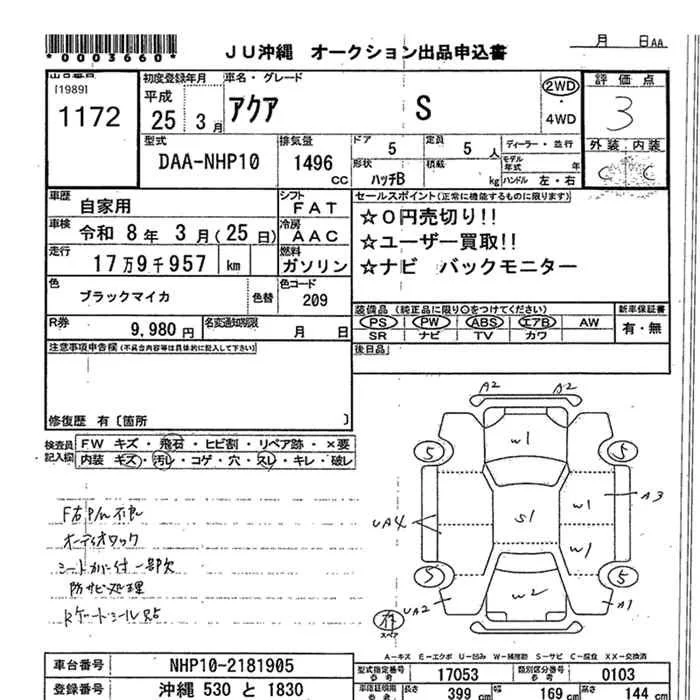 *0003660*
JU沖縄 オークション出品申込書
月 日 AA
出品番号
[1989]
1172
初度登録年月
平成
25 3月
車名・グレード
アクア S
2WD
・
4WD
評価点
3
外装 内装
C C
型式
DAA-NHP10
排気量
1496
CC
ドア
5
定員
5 人
形状
ハッチB
積載
kg
ディーラー・並行
モデル年式 年
ハンドル 左・右
車歴
自家用
シフト
FAT
車検
令和 8年 3月(25日)
冷房
AAC
走行
17万9千957 km
燃料
ガソリン
色
ブラックマイカ
色替
色コード
209
R券
9,980円
名変通知期限
月 日
セールスポイント(正常に機能するものに限ります)
☆0円売切り!!
☆ユーザー買取!!
☆ナビ バックモニター
装備品(純正品に限り○をつけてください)
PS PW ABS エアB AW
SR ナビ TV カワ
新車保証書
有・無
後日品
注意事項申告欄(不具合内容等は具体的に記入して下さい)
修復歴 有〔箇所 〕
検査員
記入欄
FW キズ・飛石・ヒビ割・リペア跡・×要
内装 キズ・汚レ・コゲ・穴・スレ・キレ・破レ
オーディオロック
シートカバー付 一部欠
防サビ処理
A2 A2
5 W1 5
W1 A3
UA4 S1
W1
5 W2 5
UA2 A1
スペア
A-キズ E-エクボ U-凹み W-補修跡 S-サビ C-腐食 XX-交換済
車台番号
NHP10-2181905
登録番号
沖縄 530 と 1830
型式指定番号
参考
17053
類別区分番号
参考
0103
長さ
399 cm
幅
169 cm
高さ
144 cm